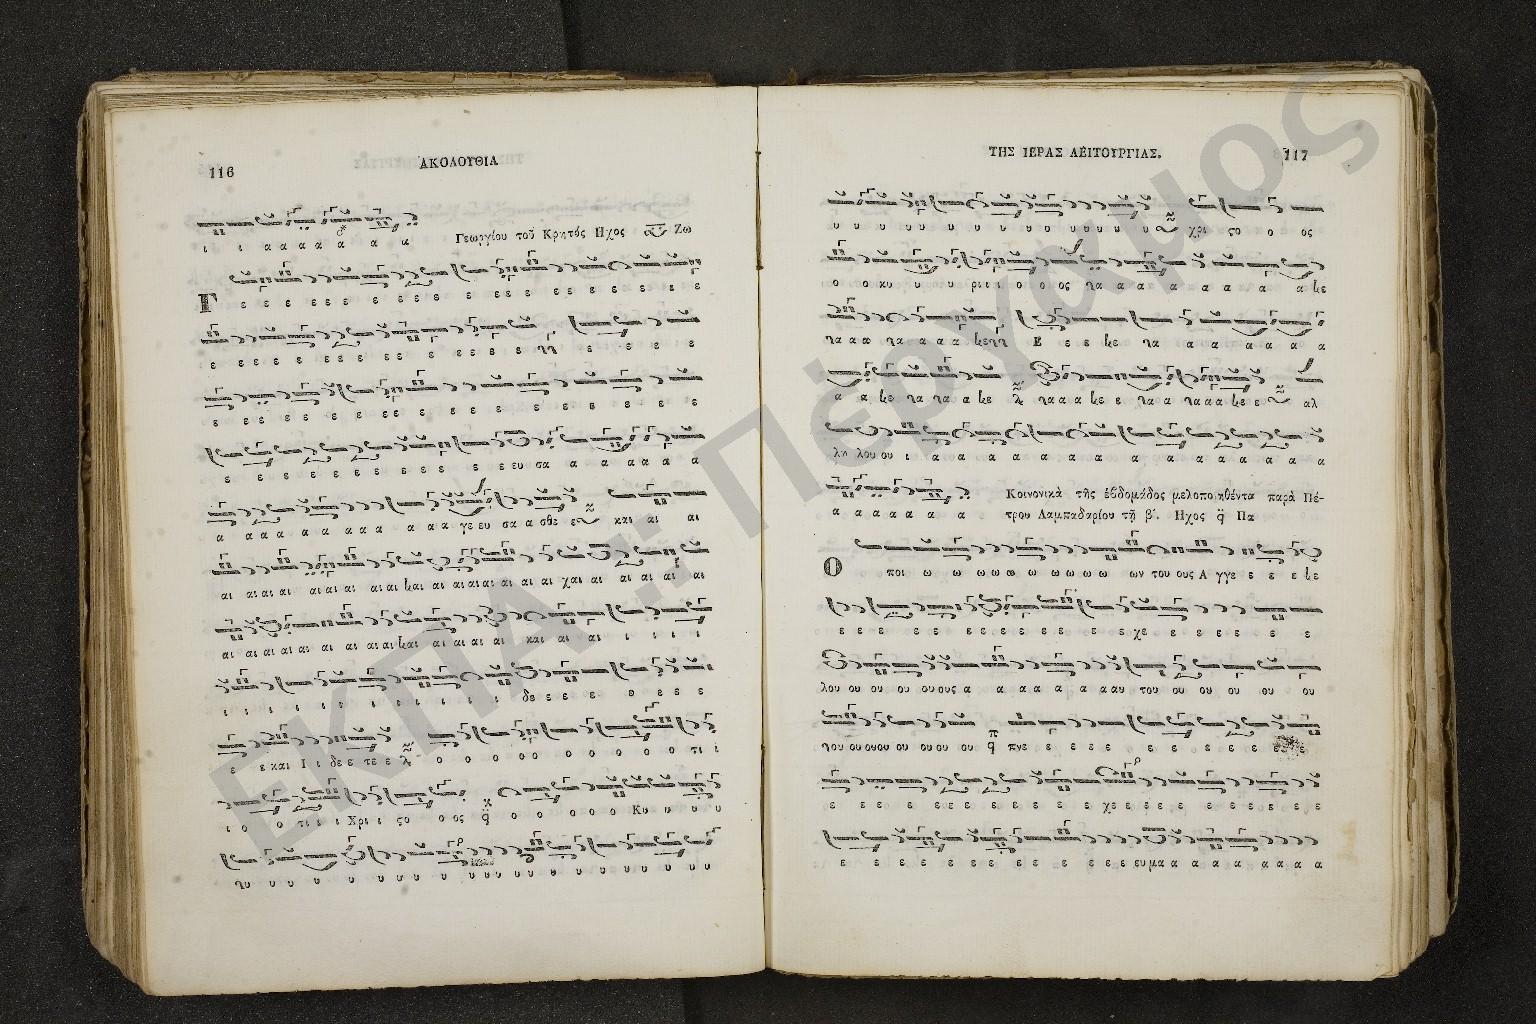 116
ΑΚΟΛΟΥΘΙΑ
ι ι α α α α α α α Γεωργίου τοῦ Κρητός Ηχος Ζω
Γ ε ε ε ε ε ε ε ε ε ε ε ε ε ε ε ε ε
ε ε ε ε ε ε ε ε ε ε ε ε ε ε ε γγ ε ε ε ε
ε ε ε ε ε ε ε ε ε ε ε ε ε ε ε
ε ε ε ε ε ε ε ε ε ε ευ σα α α α α α α
α α α α α α α α α α α γε ευ σα α σθε ε και αι αι
αι αι αι αι αι αι αι αι και αι αι αι αι αι αι αι αι χαι αι αι αι αι αι
αι αι αι αι αι αι αι αι αι και αι αι αι αι και αι αι ι ι ι ι
ι ι ι ι ι ι ι ι ι ι δε ε ε ε ε ε ε ε
ε ε και Ι ι δε ε τε ε ο ο ο ο ο ο ο ο ο ο ο τι ι
ι ο ο τι ι ι Χρι ι ςο ο ος ο ο ο ο ο ο Κυ υ υ υ
γυ υ υ υ υ υ υ υ υ υ υ υ υ υ υ υ υ υ
ΤΗΣ ΙΕΡΑΣ ΛΕΙΤΟΥΡΓΙΑΣ.
117
υ υ υ υ υ υ υ υ υ υ υ υ υ υ υ υ χρι ςο ο ος
ο ο κυ υ υ ρι ι ι ο ο ο ος γα α α α α α α α κε
γα α α γα α α α κεγγ Ε ε ε κε γα α α α α α α
α α κε γα γα α κε γα α α κε ε γα α γα α α κε ε αλ
λη λου ου ι α α α α α α α α α α α α α α α
α α α α α α α Κοινονικὰ τῆς ἑβδομάδος μελοποιηθέντα παρὰ Πέ-
τρου Λαμπαδαρίου τῇ β΄. Ηχος Πα
Ο ποι ω ω ω ω ω ω ω ω ω ω ων του ους Α γγε ε ε ε κε
ε ε ε ε ε ε ε ε ε ε ε ε ε χε ε ε ε ε ε ε
λου ου ου ου ου ους α α α α α α α αυ του ου ου ου ου ου
του ου ου ου ου ου ου ου πνε ε ε ε ε ε ε ε ε ε ε ε
ε ε ε ε ε ε ε ε ε ε ε ε ε χε ε ε ε ε ε ε ε ε ε
ε ε ε ε ε ε ε ε ε ε ε ε ε ευ μα α α α α α α α α
ΕΚΠΑ :: Πέργαμος